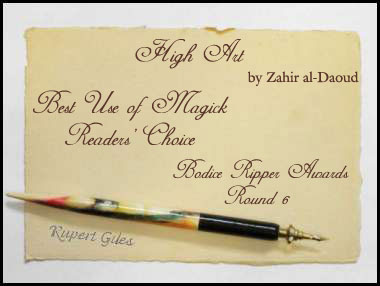 High Art
by Zahir al-Daoud
Best Use of Magick
Readers' Choice
Bodice Ripper Awards
Round 6
Rupert Giles